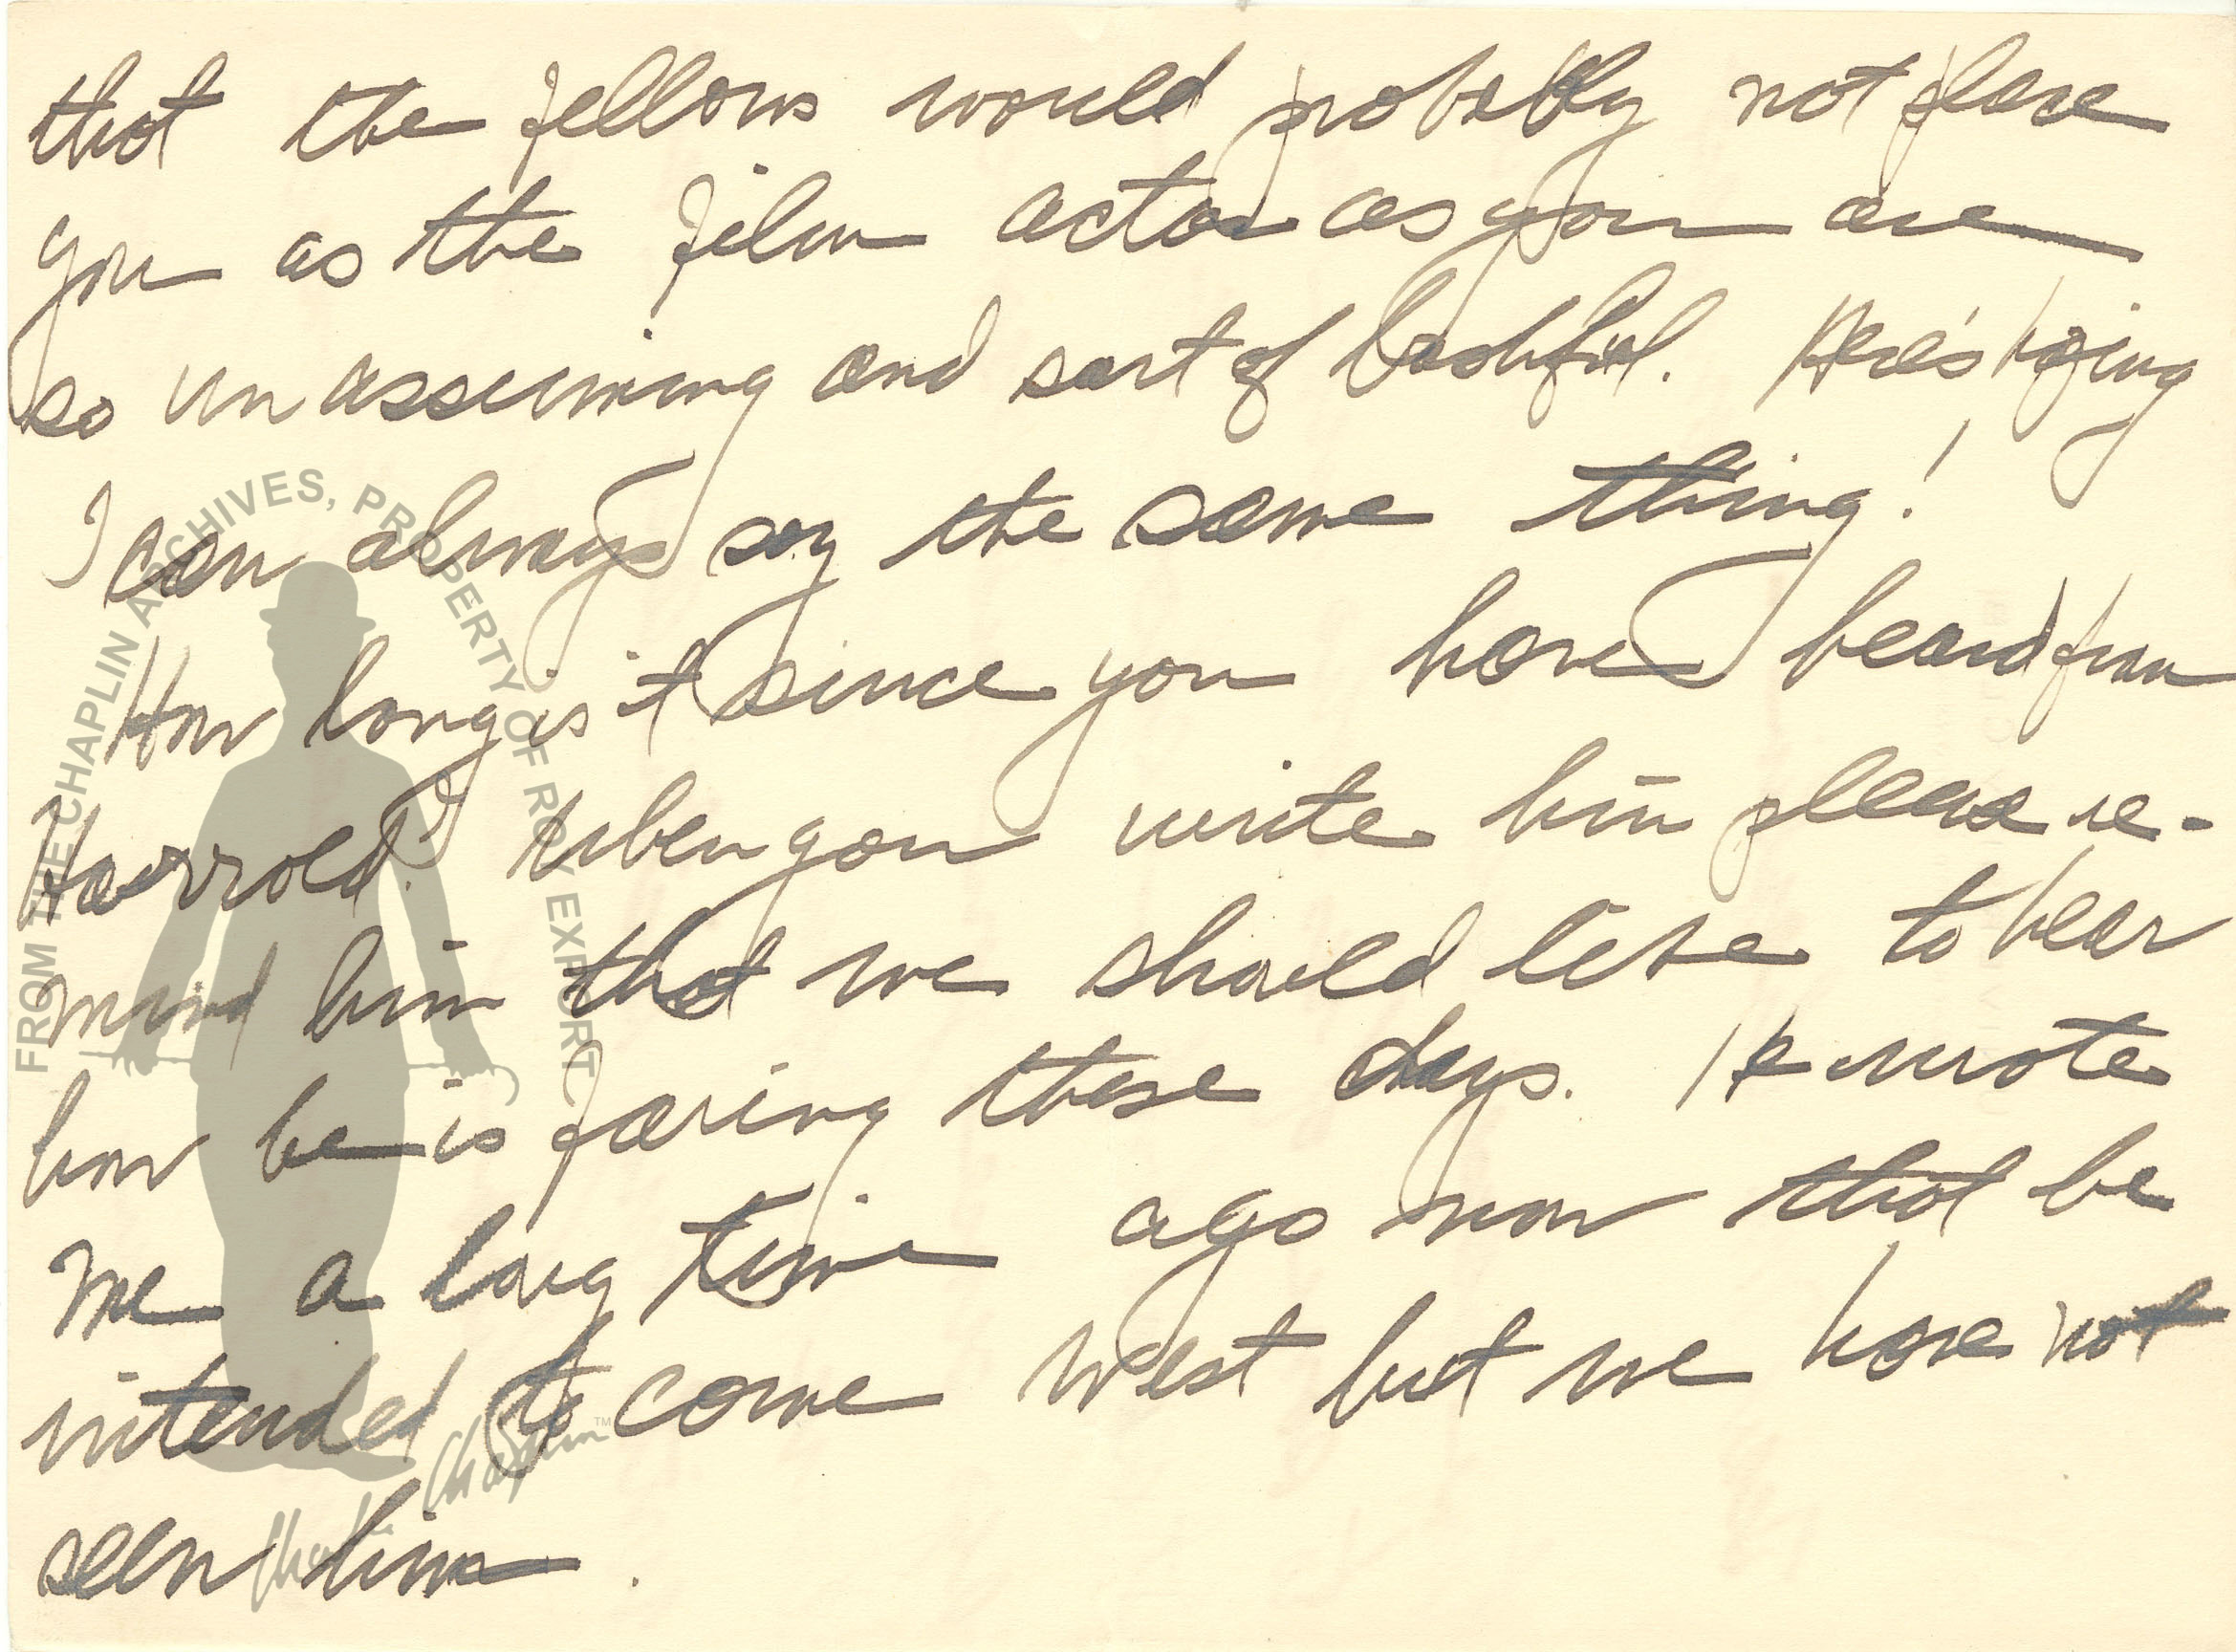 that the fellows would probably not place
you as the film actor as you are
so unassuming and sort of bashful. Here's hoping
I can always say the same thing!
How long is it since you have heard from
Harrold? When you write him please re-
mind him that we should like to hear
how he is faring these days. He wrote
me a long time ago now that he
intended to come West but we have not
seen him.
FROM THE CHAPLIN ARCHIVES, PROPERTY OF ROY EXPORT
Charlie Chaplin™